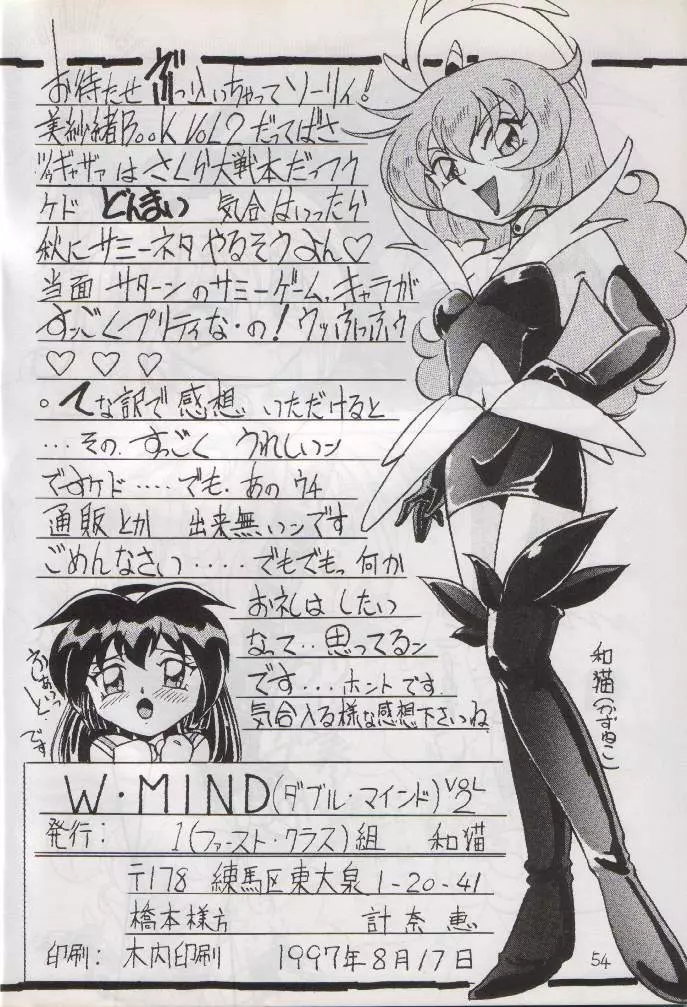 お待たせ ぶっ込いちゃってソーリィ!
美紗緒BooK VoL2 だってばさ
はさくら大戦本だっつう
ケド どんまい 気合はいったら
秋にサミーネタ やるそうよん♡
当面 サターンのサミーゲーム、キャラが
すっごくプリティな・の! ウッふっふっ
♡ ♡ ♡
な訳で 感想 いただけると
...その、すっごく うれしいン
ですケド....でも、あの ウチ
通販とか 出来無いンです
ごめんなさい....でもでもっ 何か
お礼は したい
なって..思ってるン
です...ホントです.
気合入る様な感想下さいね
です
和猫(かずねこ)
W・MIND(ダブル・マインド) VOL 2
発行: 1(ファースト・クラス)組 和猫
〒178 練馬区東大泉 1-20-41
橋本様方 計奈恵
印刷: 木内印刷 1997年8月17日
54